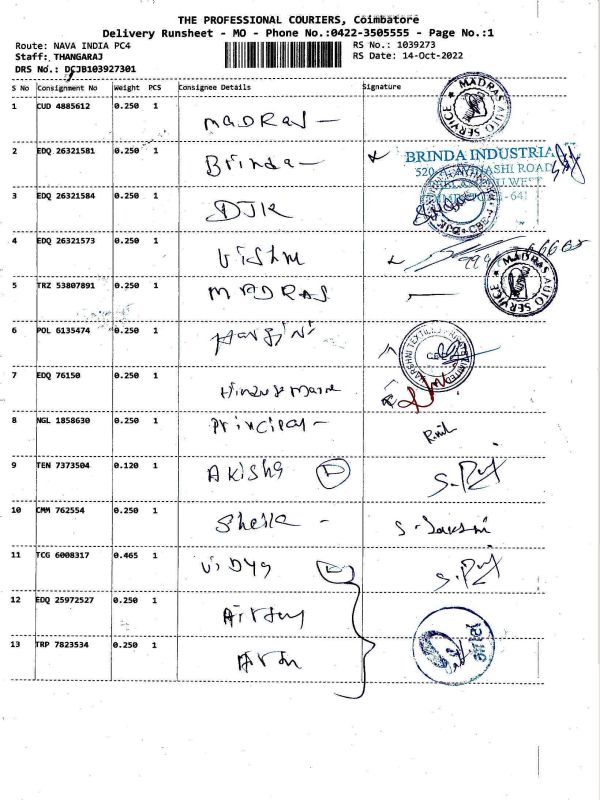 THE PROFESSIONAL COURIERS, Coimbatore
Delivery Runsheet - MO - Phone No.:0422-3505555 - Page No.:1
Route: NAVA INDIA PC4 RS No.: 1039273
Staff: THANGARAJ RS Date: 14-Oct-2022
DRS No.: DCJB103927301
S No Consignment No Weight PCS Consignee Details Signature
1 CUD 4885612 0.250 1 MADRAS - MADRAS AUTO SERVICE
2 EDQ 26321581 0.250 1 Brinda - BRINDA INDUSTRIA
520 A, AVINASHI ROAD
3 EDQ 26321584 0.250 1 DJK
4 EDQ 26321573 0.250 1 Vishnu
5 TRZ 53807891 0.250 1 MADRAS MADRAS AUTO SERVICE
6 POL 6135474 0.250 1
7 EDQ 76150 0.250 1
8 NGL 1858630 0.250 1 Principal -
9 TEN 7373504 0.120 1 AKISHA
10 CMM 762554 0.250 1
11 TCG 6008317 0.465 1 ViDya
12 EDQ 25972527 0.250 1
13 TRP 7823534 0.250 1